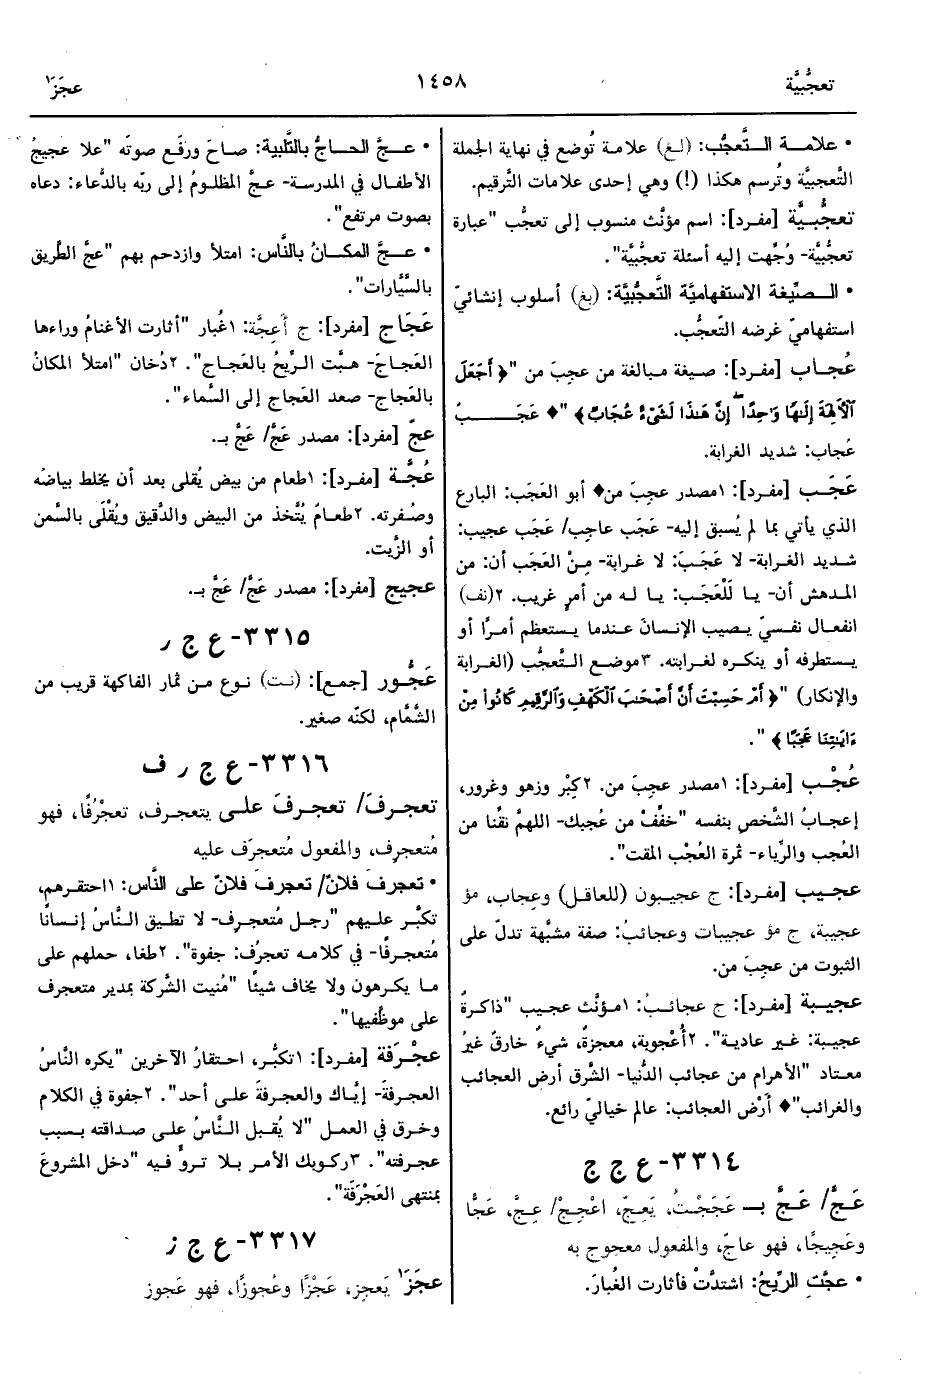 تعجُّبيَّة
١٤٥٨
عجَزَ١
• علامـة الـتَّعجُّب: (لـغ) علامـة تُوضع في نهاية الجملة
التَّعجبيَّة وتُرسم هكذا (!) وهي إحدى علامات التَّرقيم.
تعجُّبـيَّة [مفرد]: اسم مؤنَّث منسوب إلى تعجُّب "عبارة
تعجُّبيَّة- وُجِّهت إليه أسئلة تعجُّبيَّة".
• الـصِّيغة الاستفهاميَّة التَّعجُّبيَّة: (بغ) أسلوب إنشائيّ
استفهاميّ غرضه التّعجُّب.
عُجـاب [مفرد]: صيغة مبالغة من عجِبَ من "﴿ أَجَعَلَ
ٱلْآلِهَةَ إِلَٰهًا وَٰحِدًا ۖ إِنَّ هَٰذَا لَشَىْءٌ عُجَابٌ ﴾" ♦ عَجَـــبٌ
عُجاب: شديد الغرابة.
عَجَـب [مفرد]: ١مصدر عجِبَ من ♦ أبو العَجَب: البارع
الذي يأتي بما لم يُسبق إليه- عَجَب عاجِب/ عَجَب عجيب:
شديد الغرابة- لا عَجَبَ: لا غرابة- مِـنْ العَجَب أن: من
المـدهش أن- يـا لَلْعَجَب: يـا لـه من أمرٍ غريب. ٢(نف)
انفعال نفسيّ يـصيب الإنسانَ عـندما يستعظم أمـرًا أو
يـستطرفه أو ينكره لغرابته. ٣موضع الـتَّعجُّب (الغرابة
والإنكار) "﴿ أَمْ حَسِبْتَ أَنَّ أَصْحَٰبَ ٱلْكَهْفِ وَٱلرَّقِيمِ كَانُوا۟ مِنْ
ءَايَٰتِنَا عَجَبًا ﴾".
عُجْـب [مفرد]: ١مصدر عجِبَ من. ٢كِبْر وزهو وغرور،
إعجـابُ الشَّخص بنفسه "خفِّفْ من عُجبك- اللهمَّ نقِّنا من
العُجب والرِّياء- ثمرة العُجْب المقت".
عجـيب [مفرد]: ج عجيبون (للعاقل) وعِجاب، مؤ
عجيبة، ج مؤ عجيبات وعجائبُ: صفة مشبَّهة تدلّ على
الثبوت من عجِبَ من.
عجيـبة [مفرد]: ج عجائـبُ: ١مـؤنَّث عجيب "ذاكـرةٌ
عجيـبة: غـير عاديـة". ٢أُعْجوبة، معجزة، شيءٌ خارقٌ غيرُ
معتاد "الأهرام من عجائب الدُّنيا- الشَّرق أرض العجائب
والغرائب" ♦ أَرْض العجائب: عالم خياليّ رائع.
٣٣١٤- ع ج ج
عَـجَّ/ عَـجَّ بـ عَجَجْـتُ، يَعِـجّ، اعْجِـجْ/ عِـجَّ، عَجًّا
وعَجِيجًا، فهو عاجّ، والمفعول معجوج به
• عجَّتِ الرِّيحُ: اشتدَّتْ فأثارت الغُبارَ.
• عـجَّ الحـاجُّ بالتَّلبية: صـاحَ ورفَـع صوتَه "علا عجيجُ
الأطفال في المدرسة- عـجَّ المظلومُ إلى ربّه بالدُّعاء: دعاه
بصوت مرتفع".
• عـجَّ المكـانُ بالنَّاس: امتلأ وازدحم بهم "عجَّ الطّريق
بالسَّيَّارات".
عَجَاج [مفرد]: ج أَعِجَّة: ١غُبار "أثارت الأغنامُ وراءها
العَجـاجَ- هـبَّت الرِّيحُ بالعَجـاج". ٢دُخان "امتلأ المكانُ
بالعَجاج- صعد العَجاج إلى السَّماء".
عجّ [مفرد]: مصدر عَجَّ/ عَجَّ بـ.
عُجَّـة [مفـرد]: ١طعام من بيض يُقلى بعد أن يخلط بياضُه
وصُفرته. ٢طعـامٌ يُتَّخذ من البيض والدَّقيق ويُقْلَى بالسَّمن
أو الزَّيت.
عجيج [مفرد]: مصدر عَجَّ/ عَجَّ بـ.
٣٣١٥- ع ج ر
عَجُّـور [جمع]: (نـت) نـوع مـن ثمار الفاكهة قريب من
الشَّمَّام، لكنَّه صغير.
٣٣١٦- ع ج ر ف
تعجـرفَ/ تعجـرفَ علـى يتعجـرف، تعجْرُفًا، فهو
مُتعجرِف، والمفعول مُتعجرَف عليه
• تـعجرفَ فـلانٌ/ تعجرفَ فلانٌ على النَّاس: ١احتقرهم،
تكبَّـر علـيهم "رجـل مُتعجـرف- لا تطيـق الـنَّاسُ إنـسانًا
مُتعجـرفًـا- في كلامـه تعجرُف: جفوة". ٢طغـا، حملهم على
مـا يـكرهون ولا يخاف شيئًا "مُنيت الشَّركة بمدير متعجرف
على موظَّفيها".
عجْـرَفة [مفرد]: ١تكبُّـر، احتقارُ الآخرين "يكره النَّاسُ
العجـرفةَ- إيَّـاك والعجرفةَ علـى أحد". ٢جفوة في الكلام
وخرق في العمل "لا يُقـبل الـنَّاسُ علـى صـداقته بـسبب
عجـرفته". ٣ركـوبك الأمـر بـلا تـروٍّ فـيه "دخل المشروعَ
بمنتهى العَجْرَفَة".
٣٣١٧- ع ج ز
عجَزَ١ يَعجِز، عَجْزًا وعُجوزًا، فهو عَجوز